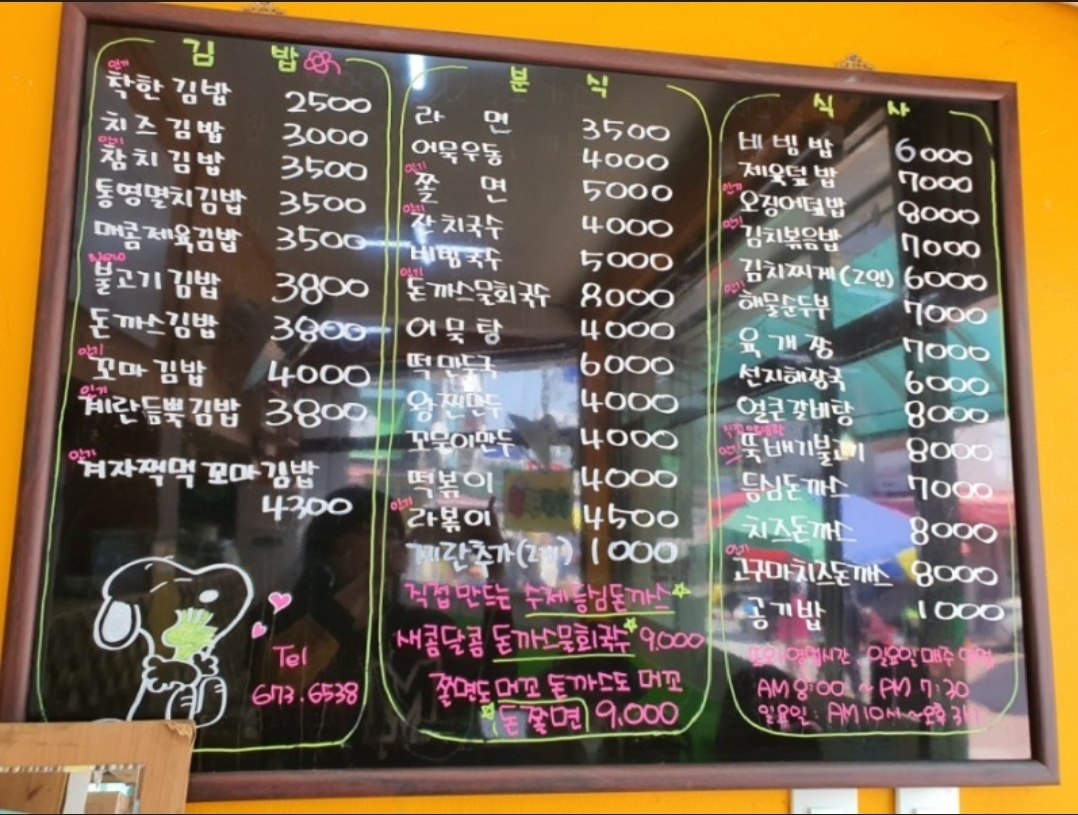 김 밥
인기
착한김밥 2500
치즈김밥 3000
인기
참치김밥 3500
통영멸치김밥 3500
매콤제육김밥 3500
New
불고기김밥 3800
돈까스김밥 3800
인기
꼬마김밥 4000
인기
계란듬뿍김밥 3800
인기
겨자찍먹 꼬마김밥
4300
Tel
673.6538
분 식
라 면 3500
어묵우동 4000
인기
쫄 면 5000
인기
잔치국수 4000
비빔국수 5000
인기
돈까스물회국수 8000
어묵탕 4000
떡만두국 6000
왕찐만두 4000
꼬물이만두 4000
떡볶이 4000
인기
라볶이 4500
계란추가(2개) 1000
직접만드는 수제등심돈까스
새콤달콤 돈까스물회국수 9.000
쫄면도 머꼬 돈까스도 머꼬
돈쫄면 9.000
식 사
비빔밥 6000
제육덮밥 7000
인기
오징어덮밥 8000
인기
김치볶음밥 7000
김치찌게(2인) 6000
인기
해물순두부 7000
육개장 7000
선지해장국 6000
얼큰갈비탕 8000
인기
뚝배기불고기 8000
등심돈까스 7000
치즈돈까스 8000
인기
고구마치즈돈까스 8000
공기밥 1000
영업시간 일요일
AM 8:00 ~ PM 7:30
일요일: AM 10시 ~ 오후 3시